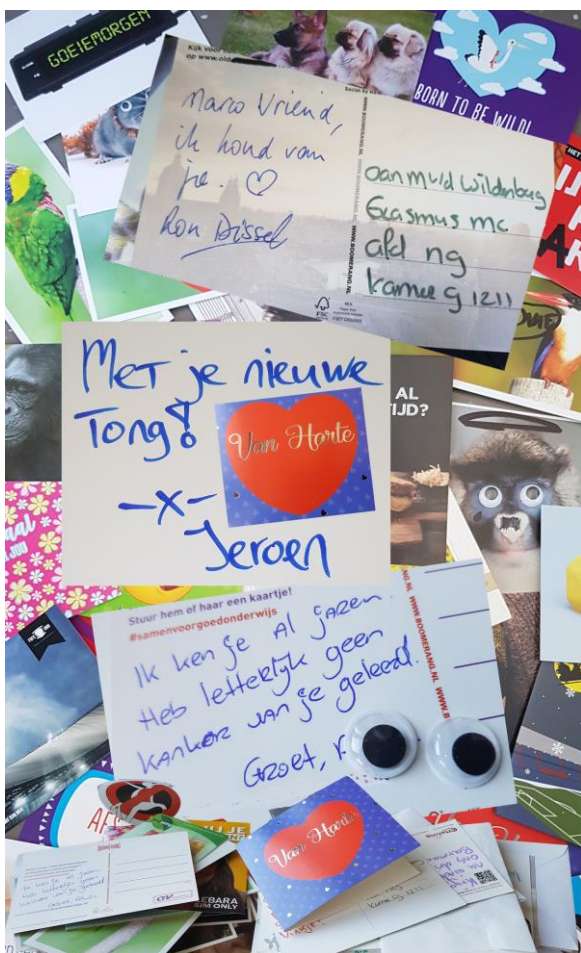 GOEIEMORGEN
BORN TO BE WILD!
Marco Vriend,
ik houd van
je. ♡
Ron Dissel
WWW.BOOMERANG.NL WWW.BOOMERANG.NL
Erasmus mc
afd ng
kamer G 1211
FSC
Met je nieuwe
Tong!
Van Harte
-x-
Jeroen
AL
TIJD?
Stuur hem of haar een kaartje!
#samenvoorgoedonderwijs
Ik ken je al jaren.
Heb letterlijk geen
kanker van je geleerd.
Groet,
Van Harte
SIM ONLY